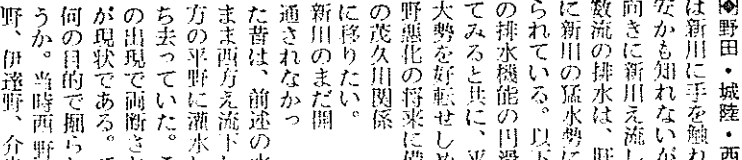 ◉野田・城陸・西
は新川に手を触わ
安かも知れないが
向きに新川え流し
数流の排水は、肝
に新川の猛水勢に
られている。以下
の排水機能の円滑
てみると共に、平
大勢を好転せしめ
野悪化の将来に備
の茂久川関係
に移りたい。
新川のまだ開
通されなかっ
た昔は、前述の水
まま西方え流下し
方の平野に灌水し
ち去っていた。こ
の出現で両断され
が現状である。
何の目的で掘ら
うか。当時西野
野、伊達野、介